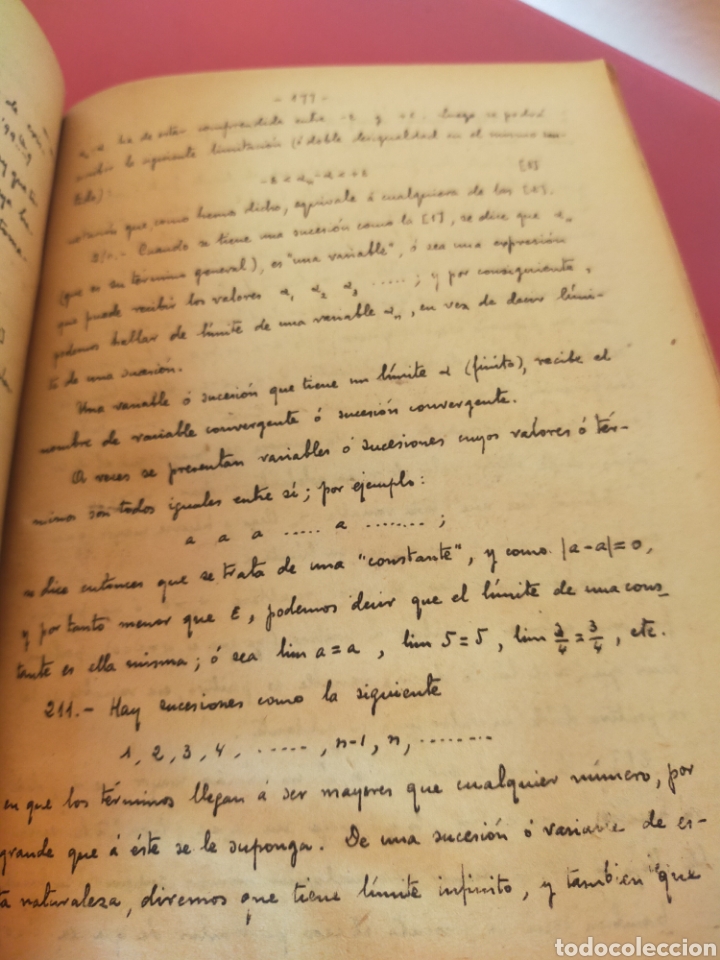 - 177 -
αₙ-α ha de estar comprendido entre -ε y +ε. Luego se podrá
escribir la siguiente limitación (ó doble desigualdad en el mismo sen-
tido)
-ε < αₙ-α < +ε [3]
notación que, como hemos dicho, equivale á cualquiera de las [2].
210.- Cuando se tiene una sucesión como la [1], se dice que αₙ
(que es su término general), es "una variable", ó sea una expresión
que puede recibir los valores α₁ α₂ α₃ .....; y por consiguiente,
podemos hablar de límite de una variable αₙ, en vez de decir lími-
te de una sucesión.
Una variable ó sucesión que tiene un límite α (finito), recibe el
nombre de variable convergente ó sucesión convergente.
A veces se presentan variables ó sucesiones cuyos valores ó tér-
minos son todos iguales entre sí; por ejemplo:
a a a ..... a ........;
se dice entonces que se trata de una "constante", y como |a-a|=0,
y por tanto menor que ε, podemos decir que el límite de una cons-
tante es ella misma; ó sea lim a=a, lim 5=5, lim 3/4=3/4, etc.
211.- Hay sucesiones como la siguiente
1, 2, 3, 4, ......, n-1, n, ........
en que los términos llegan á ser mayores que cualquier número, por
grande que á éste se le suponga. De una sucesión ó variable de es-
ta naturaleza, diremos que tiene límite infinito, y también que
todocoleccion